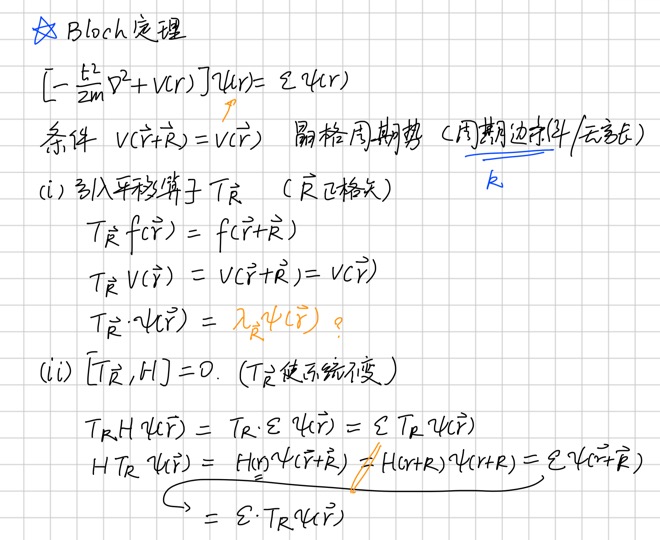 ☆ Bloch定理
[-ℏ²/2m ∇² + V(r)]ψ(r) = εψ(r)
条件 V(r⃗+R⃗) = V(r⃗) 晶格周期势 (周期边条件/无穷长)
k
(i) 引入平移算子 T_R⃗ (R⃗ 正格矢)
T_R⃗ f(r⃗) = f(r⃗+R⃗)
T_R⃗ V(r⃗) = V(r⃗+R⃗) = V(r⃗)
T_R⃗·ψ(r⃗) = λ_R⃗ψ(r⃗) ?
(ii) [T_R⃗, H] = 0. (T_R⃗ 使系统不变)
T_R Hψ(r⃗) = T_R·εψ(r⃗) = εT_Rψ(r⃗)
HT_R ψ(r⃗) = H(r)ψ(r⃗+R⃗) = H(r+R)ψ(r+R) = εψ(r⃗+R⃗)
= ε·T_Rψ(r⃗)